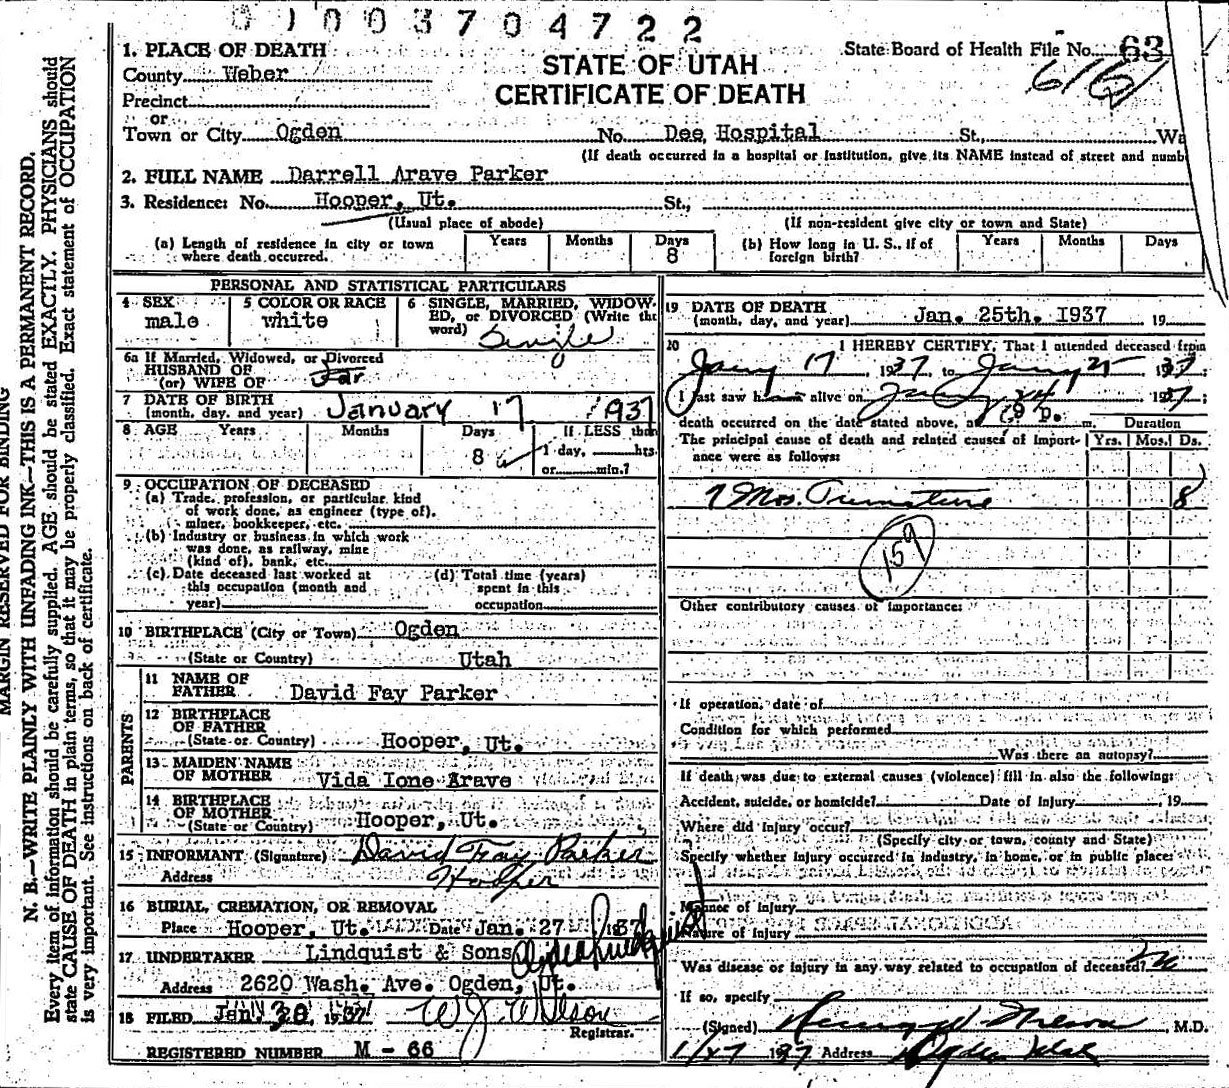 0100370 4722
1. PLACE OF DEATH
State Board of Health File No. 63
County Weber
STATE OF UTAH
CERTIFICATE OF DEATH
Precinct
or
Town or City Ogden No. Dee Hospital St., Wa
(If death occurred in a hospital or institution, give its NAME instead of street and numb
2. FULL NAME Darrell Arave Parker
3. Residence: No. Hooper, Ut. St.,
(Usual place of abode) (If non-resident give city or town and State)
(a) Length of residence in city or town where death occurred. Years Months Days 8
(b) How long in U. S., if of foreign birth? Years Months Days
PERSONAL AND STATISTICAL PARTICULARS
4 SEX male
5 COLOR OR RACE white
6 SINGLE, MARRIED, WIDOWED, or DIVORCED (Write the word) Single
6a If Married, Widowed, or Divorced
HUSBAND OF
(or) WIFE OF
7 DATE OF BIRTH
(month, day, and year) January 17 1937
8 AGE Years Months Days 8 If LESS than
1 day, hrs.
or min.?
9 OCCUPATION OF DECEASED
(a) Trade, profession, or particular kind
of work done, as engineer (type of),
miner, bookkeeper, etc.
(b) Industry or business in which work
was done, as railway, mine
(kind of), bank, etc.
(c) Date deceased last worked at
this occupation (month and
year)
(d) Total time (years)
spent in this
occupation
10 BIRTHPLACE (City or Town) Ogden
(State or Country) Utah
PARENTS
11 NAME OF
FATHER David Fay Parker
12 BIRTHPLACE
OF FATHER
(State or Country) Hooper, Ut.
13 MAIDEN NAME
OF MOTHER Vida Ione Arave
14 BIRTHPLACE
OF MOTHER
(State or Country) Hooper, Ut.
15 INFORMANT (Signature) David Fay Parker
Address Hooper
16 BURIAL, CREMATION, OR REMOVAL
Place Hooper, Ut. Date Jan. 27 1937
17 UNDERTAKER Lindquist & Sons
Address 2620 Wash. Ave. Ogden, Ut.
18 FILED Jan. 30, 1937 W J Wilson
Registrar.
REGISTERED NUMBER M - 66
19 DATE OF DEATH
(month, day, and year) Jan. 25th. 1937 19
20 I HEREBY CERTIFY, That I attended deceased from
Jany 17, 1937, to Jany 25 1937;
I last saw h alive on Jany 24 1937;
death occurred on the date stated above, at p. m. Duration
The principal cause of death and related causes of importance were as follows: Yrs. Mos. Ds.
7 Mos. Premature 8
159
Other contributory causes of importance:
If operation, date of
Condition for which performed
Was there an autopsy?
If death was due to external causes (violence) fill in also the following:
Accident, suicide, or homicide? Date of injury , 19
Where did injury occur?
(Specify city or town, county and State)
Specify whether injury occurred in industry, in home, or in public place:
Manner of injury
Nature of injury
Was disease or injury in any way related to occupation of deceased? no
If so, specify
(Signed) M.D.
1/27 1937 Address Ogden Utah
MARGIN RESERVED FOR BINDING
N. B.—WRITE PLAINLY WITH UNFADING INK—THIS IS A PERMANENT RECORD.
Every item of information should be carefully supplied. AGE should be stated EXACTLY. PHYSICIANS should
state CAUSE OF DEATH in plain terms, so that it may be properly classified. Exact statement of OCCUPATION
is very important. See instructions on back of certificate.